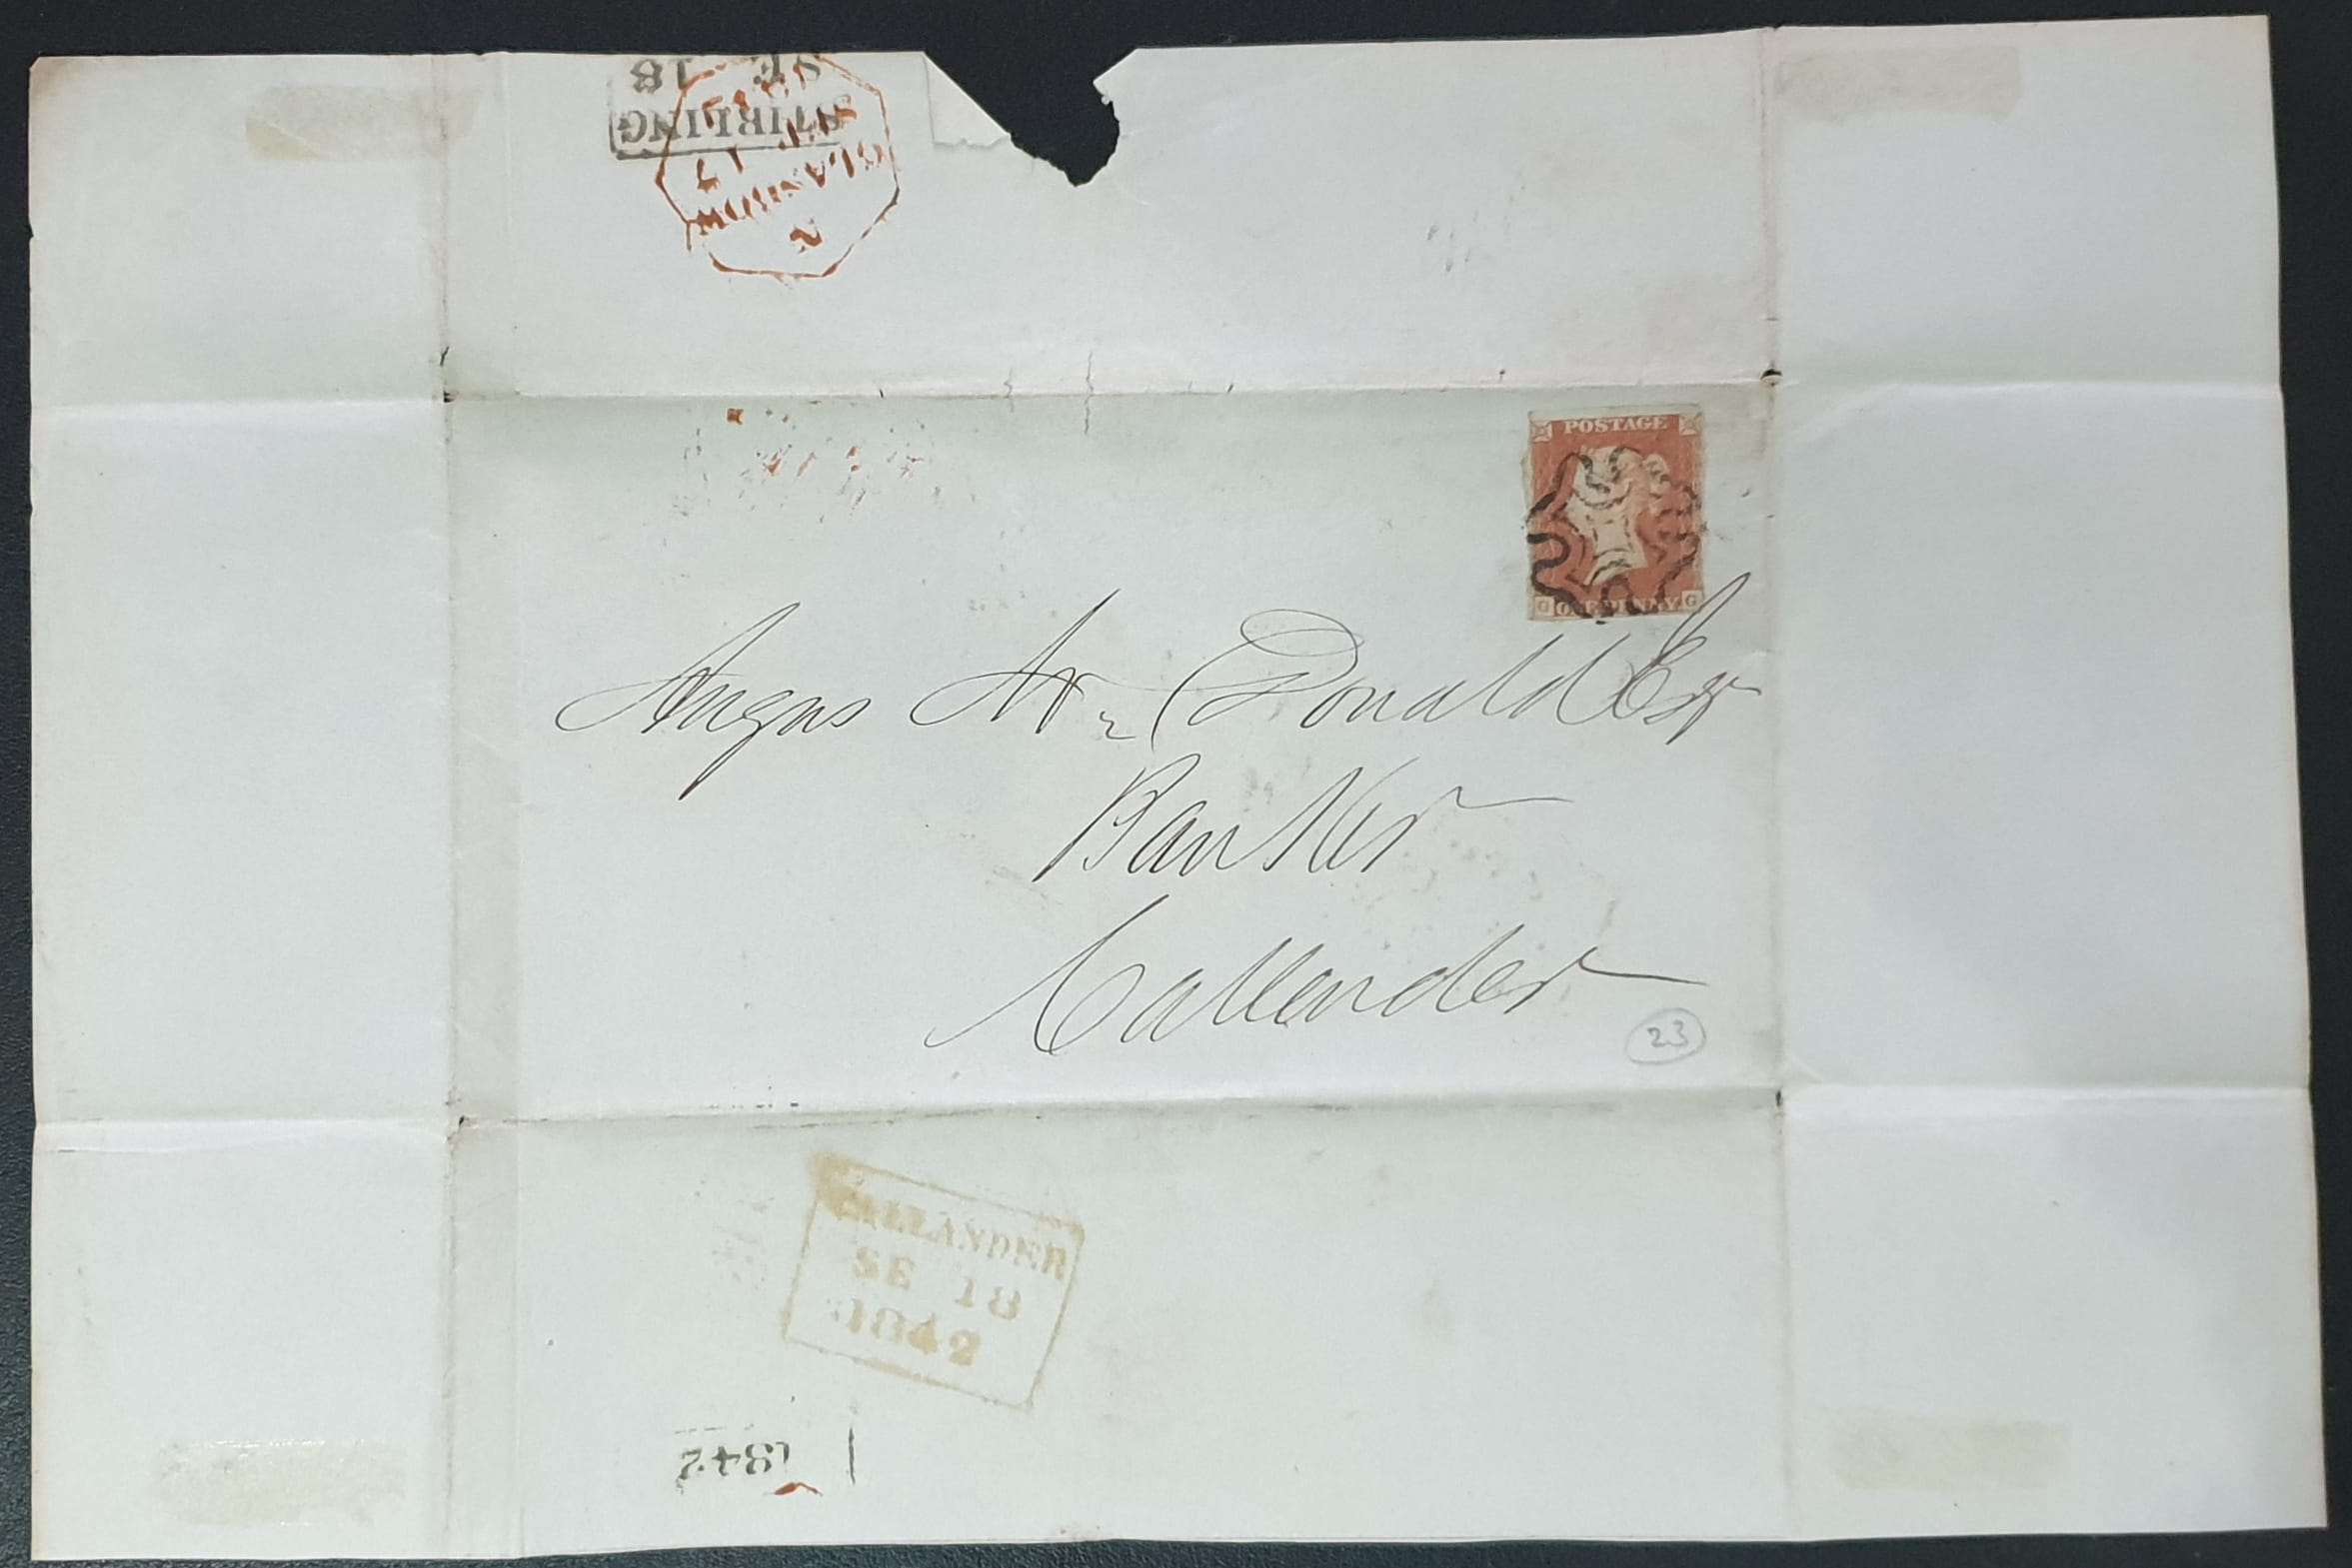 SE 18
STIRLING
SE 17
GLASGOW
POSTAGE
G ONE PENNY G
Angus Mc Donald Esqr
Banker
Callander
23
CALLANDER
SE 18
1842
1842